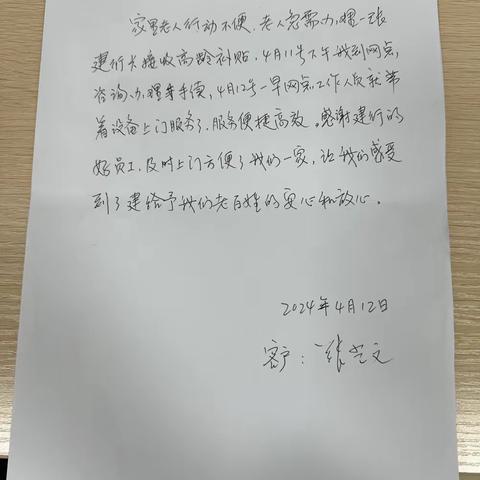 家里老人行动不便，老人急需办理一张
建行卡接收高龄补贴，4月11号下午我到网点，
咨询办理等手续，4月12号一早网点工作人员就带
着设备上门服务了，服务便捷高效。感谢建行的
好员工，及时上门方便了我们一家，让我们感受
到了建给予我们老百姓的安心和放心。
2024年4月12日
客户：张